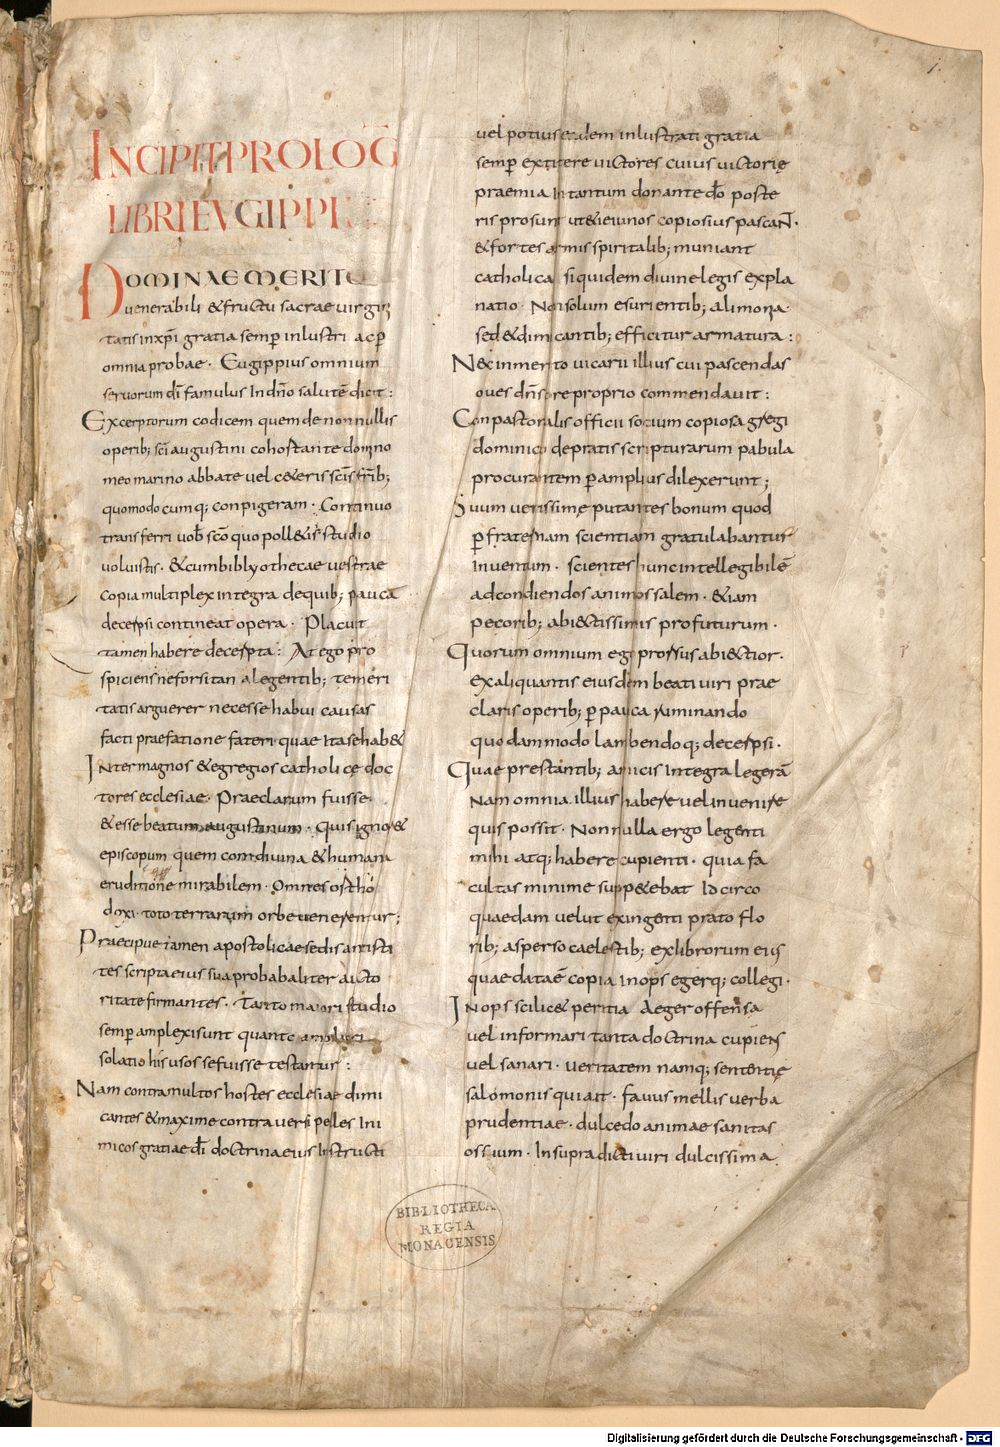 1.
INCIPIT PROLOḠ
LIBRI EVGIPPI
DOMINAE MERITO
venerabili & fructu sacrae virgini
tatis inxp̄i gratia semp̄ inlustri ac p̄
omnia probae · Eugippius omnium
servorum dī famulus In dn̄o salutē dicit :
Excerptorum codicem quem de nonnullis
operib; sc̄i augustini cohortante domno
meo marino abbate vel c&eris sc̄is fr̄ib;
quomodo cumq; conpigeram · Continuo
transferri vob̄ sc̄o quo poll&is studio
voluistis · & cum bibliothecae vestrae
copia multiplex integra de quib; paucā
decerpsi contineat opera · Placuit
tamen habere decerpta : At ego pro
spiciens ne forsitan a legentib; temeri
tatis arguerer necesse habui causas
facti praefatione fateri quae Ita sehab&
Inter magnos & egregios catholice doc
tores ecclesiae · Praeclarum fuisse
& esse beatum augustinum · Quis ignor&
episcopum quem cum divina & humana
eruditione mirabilem · Omnes ortho
doxi · toto terrarum orbe venerentur ;
Praecipue tamen apostolicae sedis antisti
tes scripta eius sua probabaliter aucto
ritate firmantes · Tanto maiori studio
semp̄ amplexi sunt quanto
solatio his usos se fuisse testantur :
Nam contra multos hostes ecclesiae dimi
cantes & maxime contra versipelles Ini
micos gratiae dī doctrina eius Instructi
vel potius eadem inlustrati gratia
semp̄ extitere victores cuius victorię
praemia In tantum donante dō poste
ris prosunt ut & eiunos copiosius pascaN̄ ·
& fortes armis spiritalib; muniant
catholica siquidem divine legis expla
natio · Non solum esurientib; alimonia ·
sed & dimicantib; efficitur armatura :
Nec inmerito vicarii illius cui pascendas
oves dn̄s ore proprio commendavit :
Conpastoralis officii socium copiosa gregi
dominico de pratis scripturarum pabula
procurantem p̄ amplius dilexerunt ;
Suum verissime putantes bonum quod
p̄ fraternam scientiam gratulabantur
Inventum · scientes hunc intellegibilē
ad condiendos animos salem · & iam
pecorib; abiectissimis profuturum ·
Quorum omnium ego prorsus abiectior ·
ex aliquantis eiusdem beati viri prae
claris operib; p̄ pauca ruminando
quodammodo lambendoq; decerpsi ·
Quae prestantib; amicis Integra legerā
Nam omnia illius habere vel invenire
quis possit · Nonnulla ergo legenti
mihi atq; habere cupienti · quia fa
cultas minime supp&ebat Idcirco
quaedam velut ex ingenti prato flo
rib; asperso caelestib; ex librorum eius
quae datae copia Inops egerq; collegi ·
Inops scilic& peritia Aeger offensa
vel informari tanta doctrina cupiens
vel sanari · veritatem namq; sententię
salomonis qui ait · favus mellis verba
prudentiae · dulcedo animae sanitas
ossium · In supradicti viri dulcissima
BIBLIOTHECA
REGIA
MONACENSIS
Digitalisierung gefördert durch die Deutsche Forschungsgemeinschaft - DFG